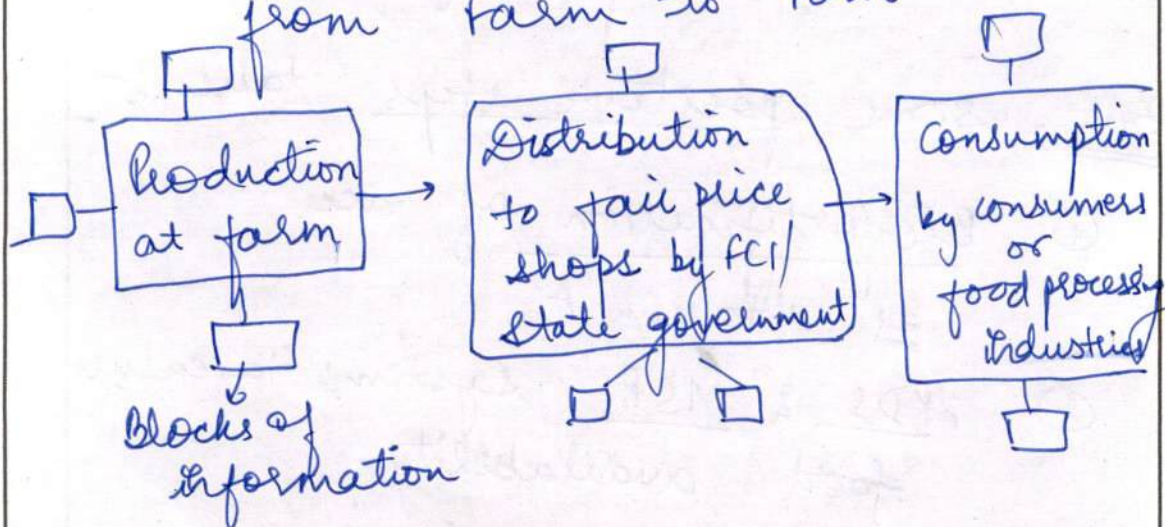 from farm to
Production
at farm
Distribution
to fair price
shops by FCI/
State government
Consumption
by consumers
or
food processing
industries
Blocks of
information